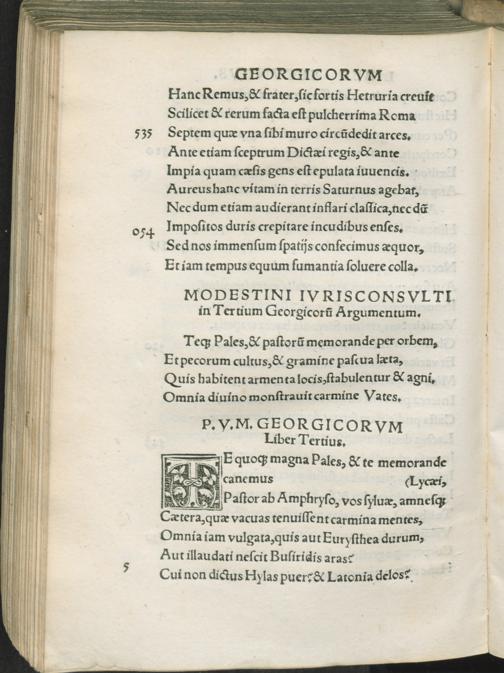 GEORGICORVM
Hanc Remus,& frater,sic fortis Hetruria creuit
Scilicet & rerum facta est pulcherrima Roma
535 Septem quæ vna sibi muro circũdedit arces.
Ante etiam sceptrum Dictæi regis,& ante
Impia quam cæsis gens est epulata iuuencis.
Aureus hanc vitam in terris Saturnus agebat,
Nec dum etiam audierant inflari classica,nec dũ
054 Impositos duris crepitare incudibus enses.
Sed nos immensum spatijs confecimus æquor,
Et iam tempus equum fumantia soluere colla.
MODESTINI IVRISCONSVLTI
in Tertium Georgicorũ Argumentum.
Teqꝫ Pales,& pastorũ memorande per orbem,
Et pecorum cultus,& gramine pascua læta,
Quis habitent armenta locis,stabulentur & agni,
Omnia diuino monstrauit carmine Vates.
P.V.M. GEORGICORVM
Liber Tertius.
TE quoqꝫ magna Pales, & te memorande
canemus (Lycæi,
Pastor ab Amphryso, vos syluæ, amnesqꝫ
Cætera,quæ vacuas tenuissent carmina mentes,
Omnia iam vulgata,quis aut Eurysthea durum,
Aut illaudati nescit Busiridis aras?
5 Cui non dictus Hylas puer?& Latonia delos?